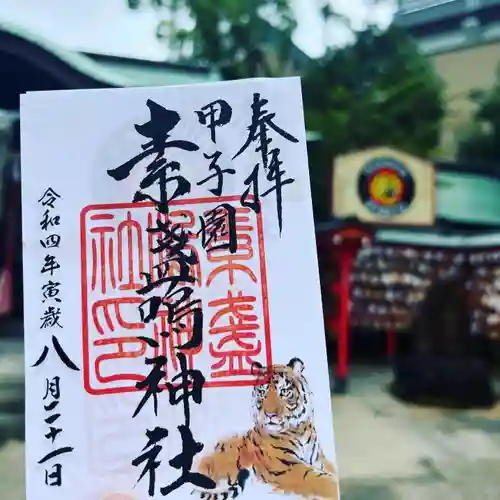 奉拝
甲子園
素盞嗚神社
素盞嗚神社印
令和四年寅歳
八月二十一日